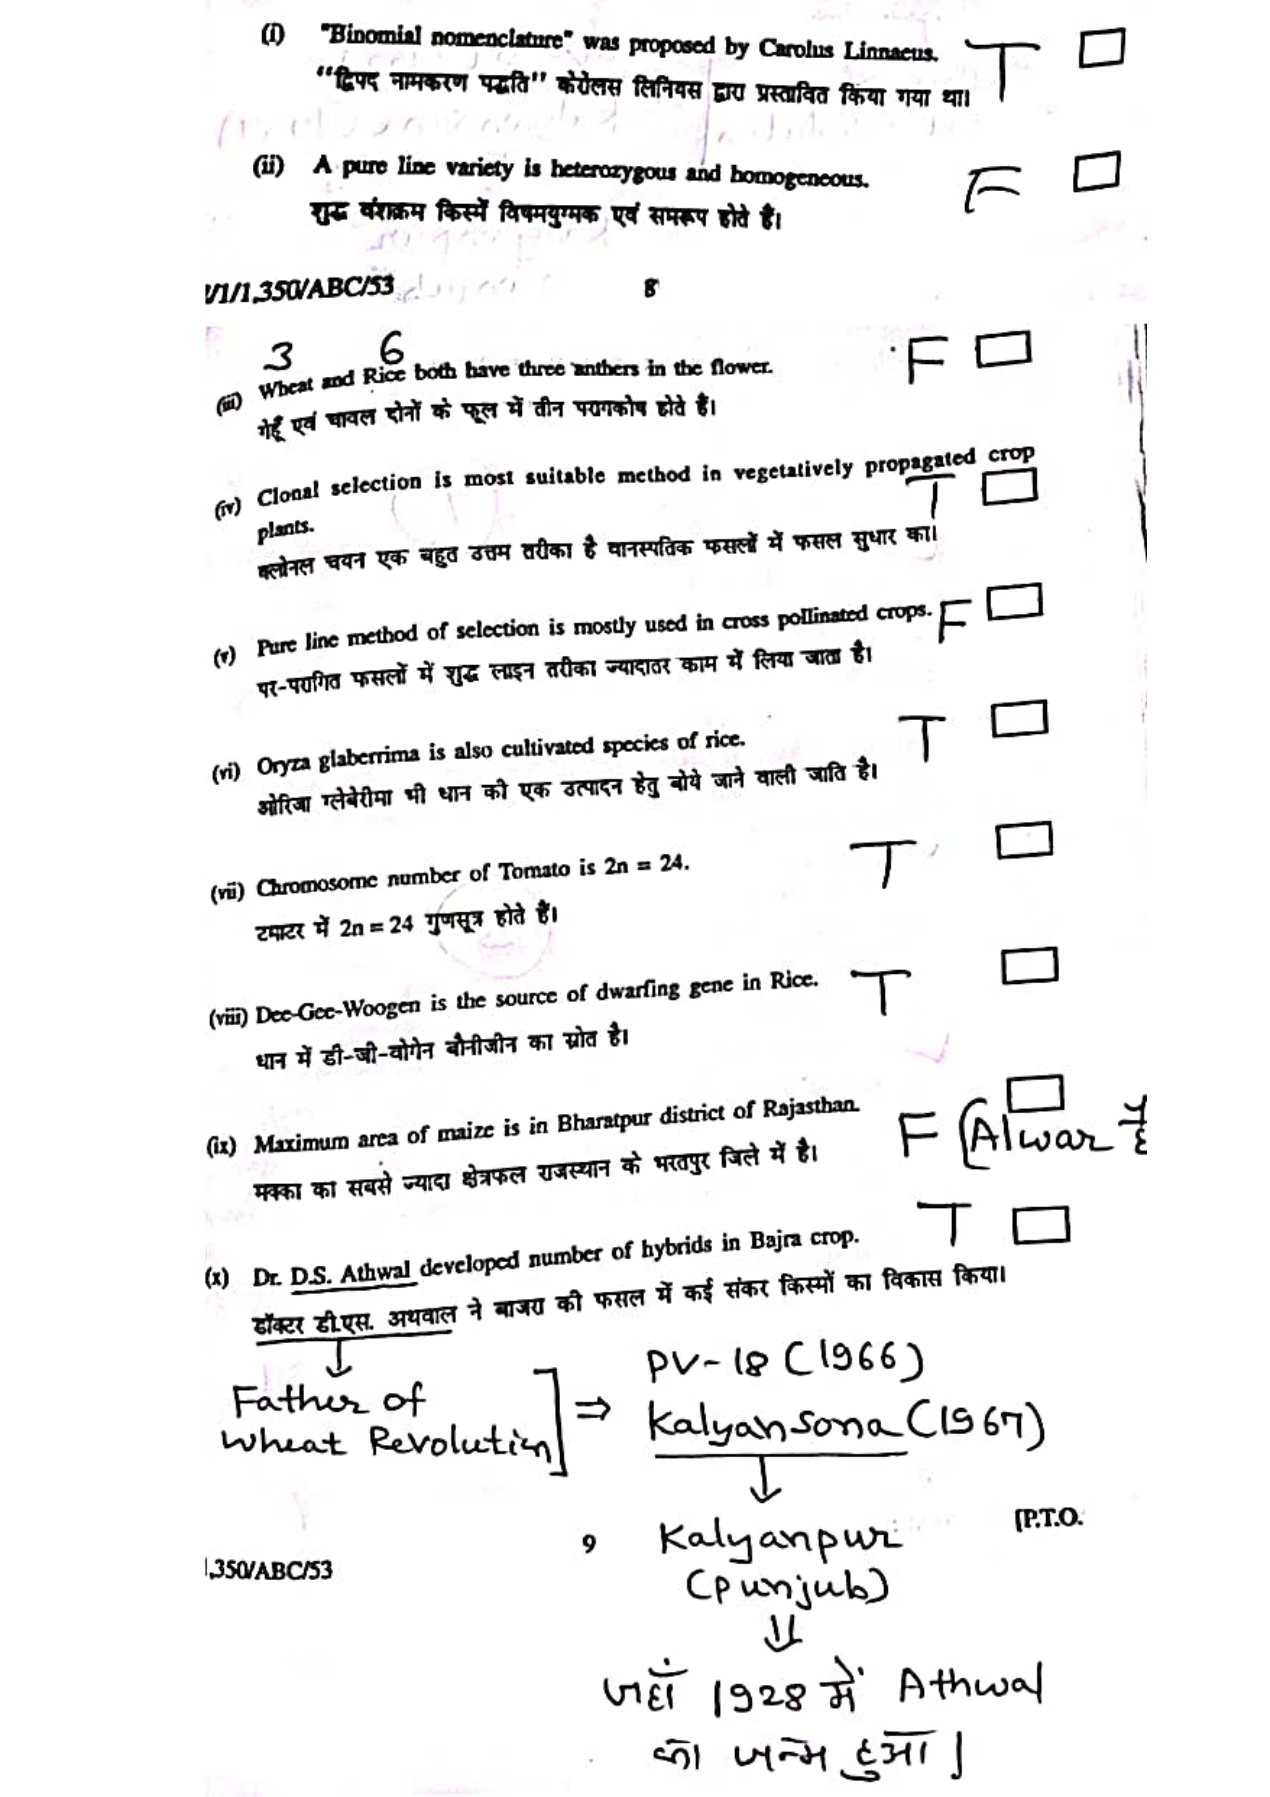 (i) "Binomial nomenclature" was proposed by Carolus Linnaeus. T
‘‘द्विपद नामकरण पद्धति’’ केरोलस लिनियस द्वारा प्रस्तावित किया गया था।
(ii) A pure line variety is heterozygous and homogeneous. F
शुद्ध वंशक्रम किस्में विषमयुग्मक एवं समरूप होते है।
/1/1,350/ABC/53 8
3 6
(iii) Wheat and Rice both have three anthers in the flower. F
गेहूँ एवं चावल दोनों के फूल में तीन परागकोष होते हैं।
(iv) Clonal selection is most suitable method in vegetatively propagated crop
plants. T
क्लोनल चयन एक बहुत उत्तम तरीका है वानस्पतिक फसलों में फसल सुधार का।
(v) Pure line method of selection is mostly used in cross pollinated crops. F
पर-परागित फसलों में शुद्ध लाइन तरीका ज्यादातर काम में लिया जाता है।
(vi) Oryza glaberrima is also cultivated species of rice. T
ओरिजा ग्लेबेरीमा भी धान की एक उत्पादन हेतु बोये जाने वाली जाति है।
(vii) Chromosome number of Tomato is 2n = 24. T
टमाटर में 2n = 24 गुणसूत्र होते हैं।
(viii) Dee-Gee-Woogen is the source of dwarfing gene in Rice. T
धान में डी-जी-वोगेन बौनीजीन का स्रोत है।
(ix) Maximum area of maize is in Bharatpur district of Rajasthan. F (Alwar है
मक्का का सबसे ज्यादा क्षेत्रफल राजस्थान के भरतपुर जिले में है।
(x) Dr. D.S. Athwal developed number of hybrids in Bajra crop. T
डॉक्टर डी.एस. अथवाल ने बाजरा की फसल में कई संकर किस्मों का विकास किया।
Father of
Wheat Revolution ] ⇒ PV-18 (1966)
Kalyansona (1967)
[P.T.O.
9
1,350/ABC/53
Kalyanpur
(Punjub)
जहाँ 1928 में Athwal
का जन्म हुआ।